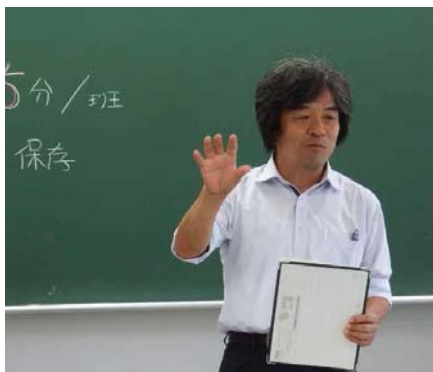 5分/班
保存